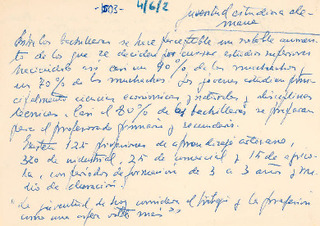 -1503-
4/6/2
juventud estudiosa ale-
mana
Entre los bachilleres se hace perceptible un notable aumen-
to de los que se deciden por cursar estudios superiores
haciéndolo así casi un 90% de los muchachos
un 70% de las muchachas. Los jóvenes estudian princi-
palmente ciencias económicas y naturales y disciplinas
técnicas. Casi el 80% de las bachilleres se preparan
para el profesorado primario y secundario.
Existen 125 profesiones de aprendizaje artesano,
320 de industrial, 25 de comercial y 15 de agrico-
la, con periodos de formacion de 3 a 3 años y me-
dio de duración.
"La juventud de hoy considera el trabajo y la profesión
como una cosa más"